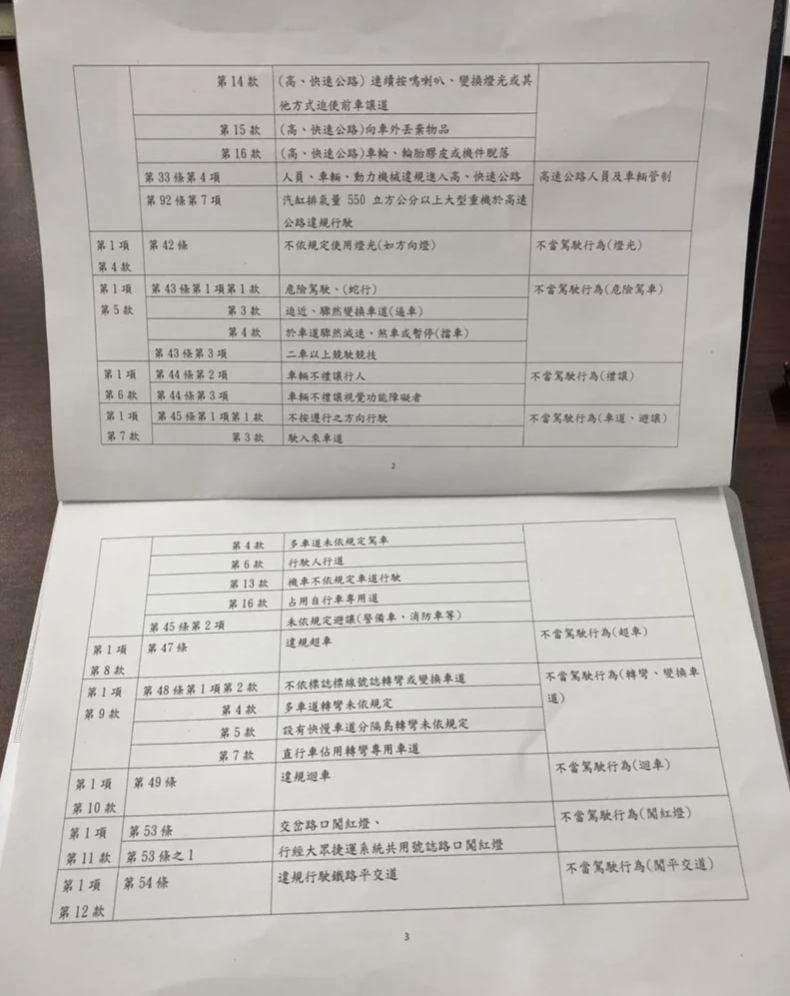 第 14 款 (高、快速公路) 連續按鳴喇叭、變換燈光或其
他方式迫使前車讓道
第 15 款 (高、快速公路)向車外丟棄物品
第 16 款 (高、快速公路)車輪、輪胎膠皮或機件脫落
第 33 條第 4 項 人員、車輛、動力機械違規進入高、快速公路 高速公路人員及車輛管制
第 92 條第 7 項 汽缸排氣量 550 立方公分以上大型重機於高速
公路違規行駛
第 1 項 第 42 條 不依規定使用燈光(如方向燈) 不當駕駛行為(燈光)
第 4 款
第 1 項 第 43 條第 1 項第 1 款 危險駕駛、(蛇行) 不當駕駛行為(危險駕車)
第 5 款 第 3 款 迫近、驟然變換車道(逼車)
第 4 款 於車道驟然減速、煞車或暫停(擋車)
第 43 條第 3 項 二車以上競駛競技
第 1 項 第 44 條第 2 項 車輛不禮讓行人 不當駕駛行為(禮讓)
第 6 款 第 44 條第 3 項 車輛不禮讓視覺功能障礙者
第 1 項 第 45 條第 1 項第 1 款 不按遵行之方向行駛 不當駕駛行為(車道、避讓)
第 7 款 第 3 款 駛入來車道
2
第 4 款 多車道未依規定駕車
第 6 款 行駛人行道
第 13 款 機車不依規定車道行駛
第 16 款 占用自行車專用道
第 45 條第 2 項 未依規定避讓(警備車、消防車等)
第 1 項 第 47 條 違規超車 不當駕駛行為(超車)
第 8 款
第 1 項 第 48 條第 1 項第 2 款 不依標誌標線號誌轉彎或變換車道 不當駕駛行為(轉彎、變換車
第 9 款 第 4 款 多車道轉彎未依規定 道)
第 5 款 設有快慢車道分隔島轉彎未依規定
第 7 款 直行車佔用轉彎專用車道
第 1 項 第 49 條 違規迴車 不當駕駛行為(迴車)
第 10 款
第 1 項 第 53 條 交岔路口闖紅燈、 不當駕駛行為(闖紅燈)
第 11 款 第 53 條之 1 行經大眾捷運系統共用號誌路口闖紅燈
第 1 項 第 54 條 違規行駛鐵路平交道 不當駕駛行為(闖平交道)
第 12 款
3